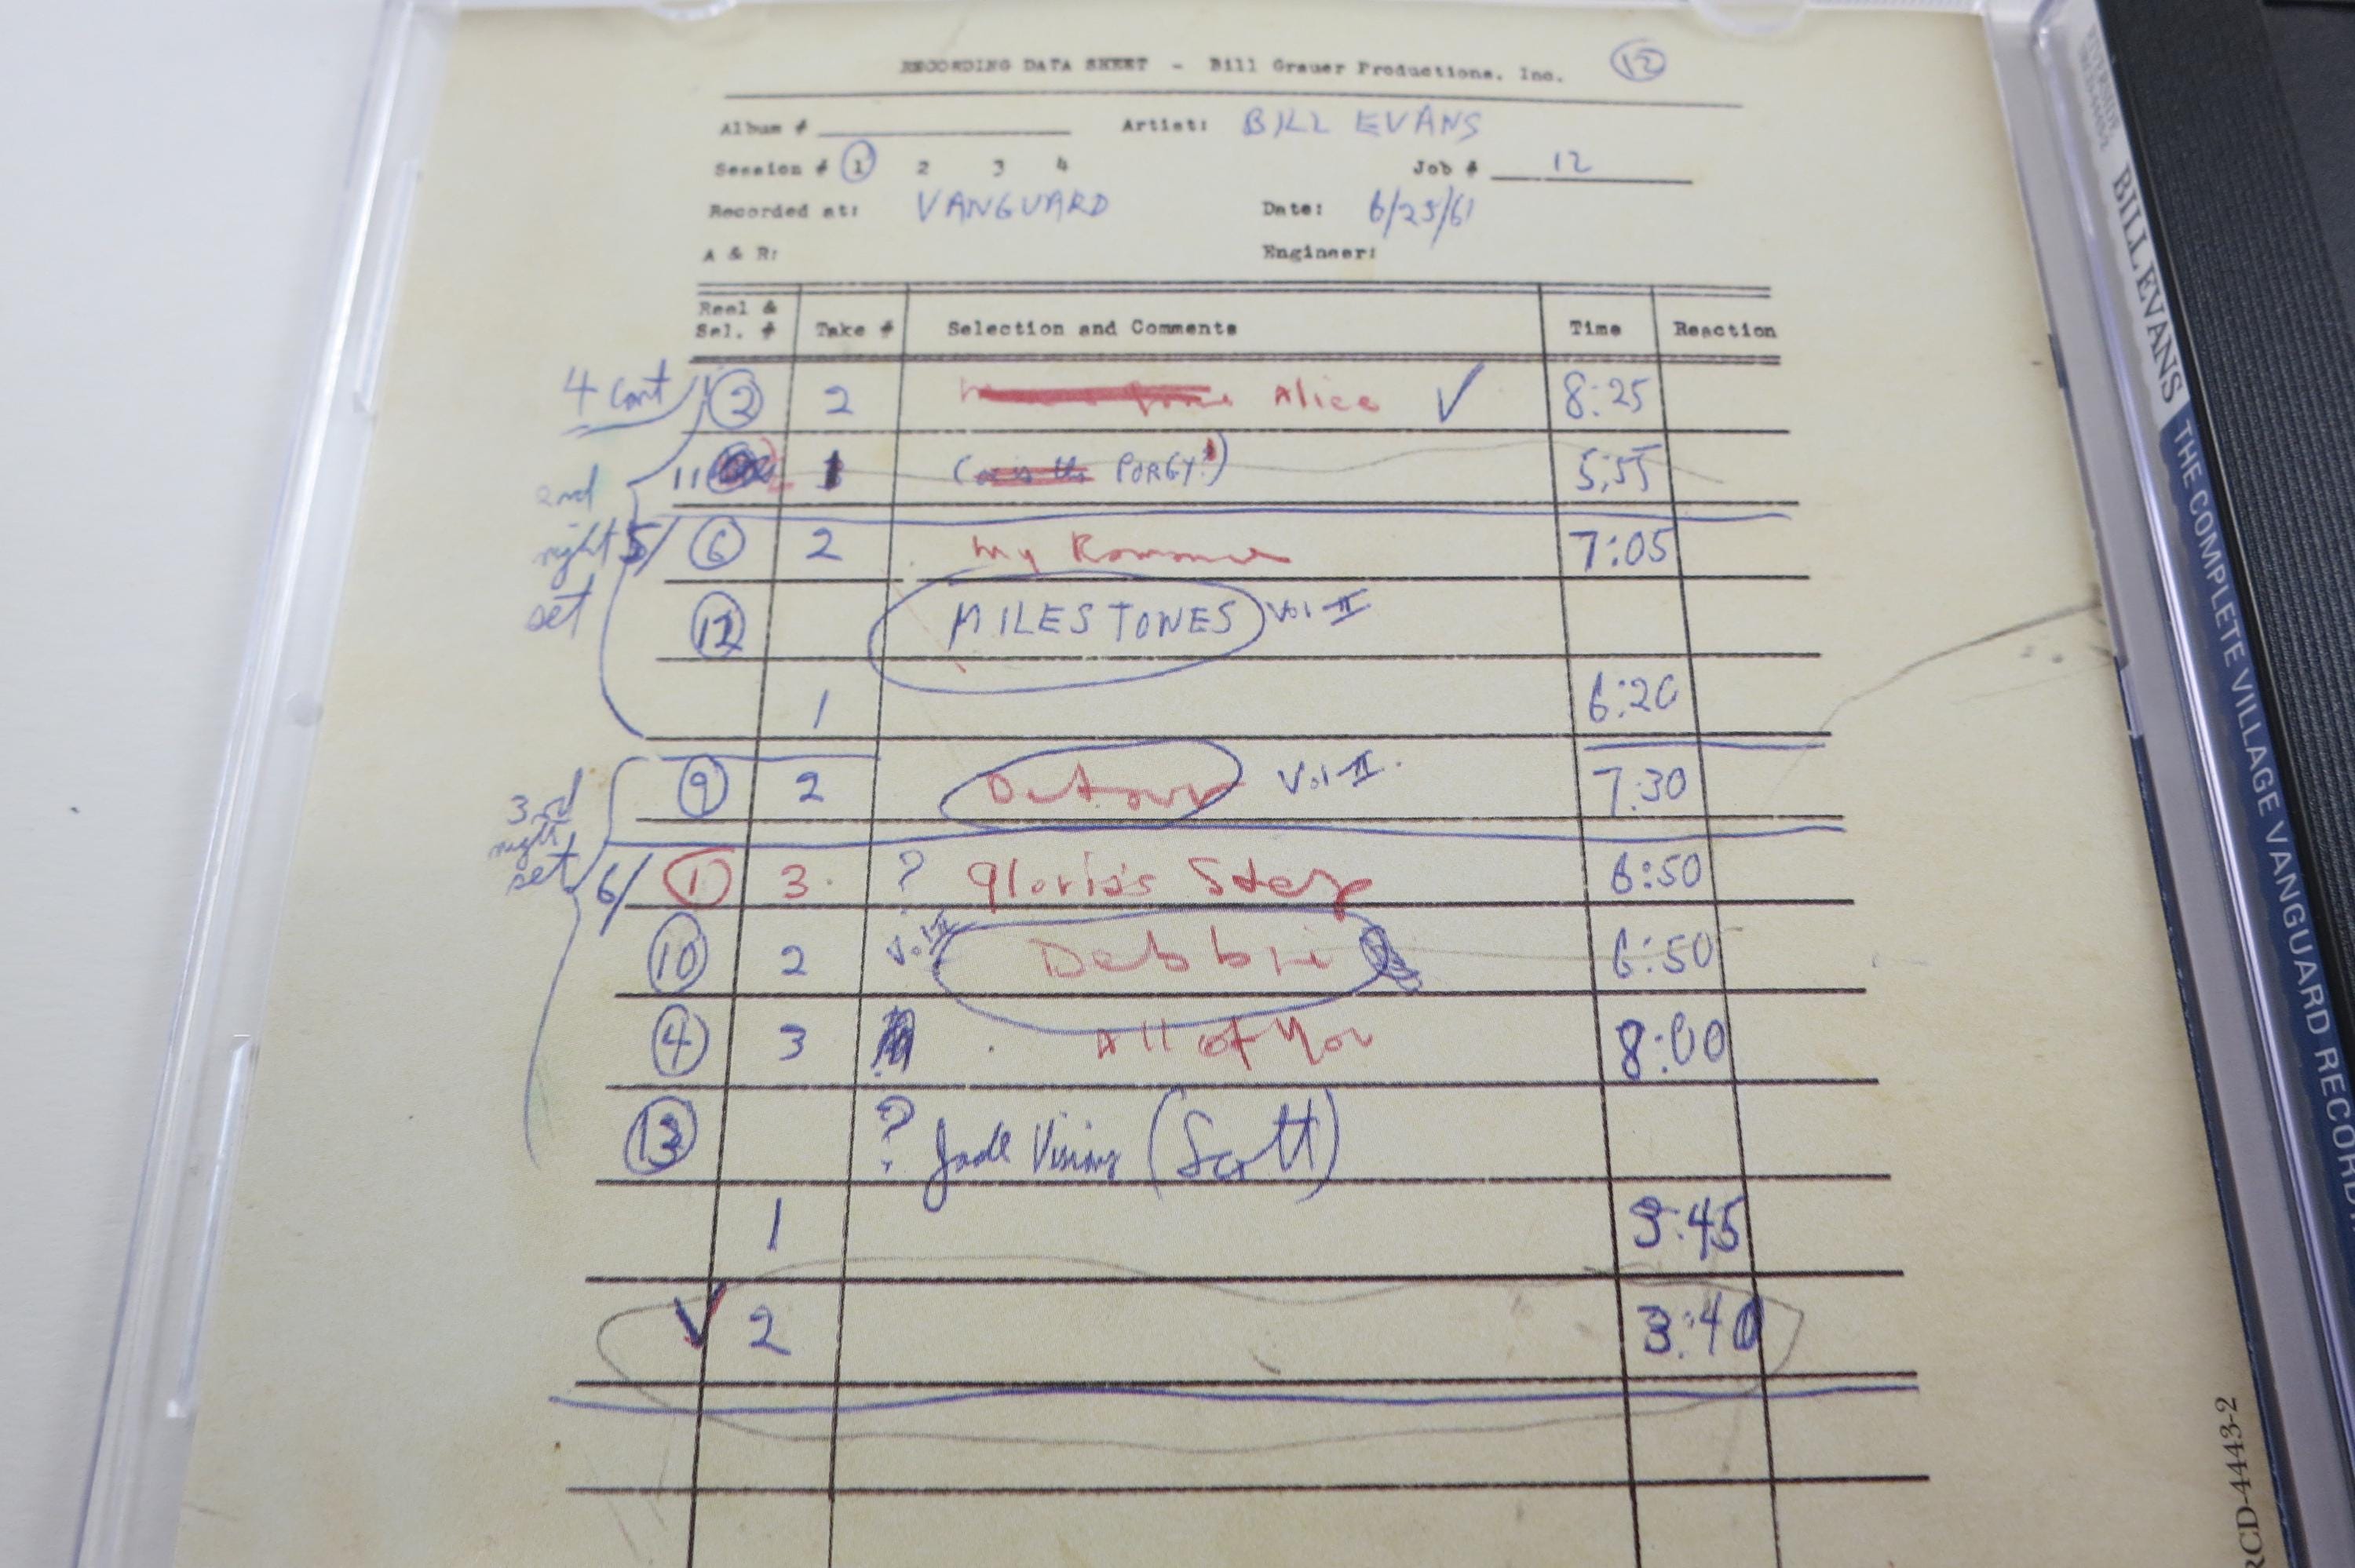 RECORDING DATA SHEET - Bill Grauer Productions, Inc. 12
Album # Artist: BILL EVANS
Session # 1 2 3 4 Job # 12
Recorded at: VANGUARD Date: 6/25/61
A & R: Engineer:
Reel & Sel. # Take # Selection and Comments Time Reaction
4 cont 2 2 Alice ✓ 8:25
11 1 ( PORGY!) 5:55
2nd night set
5/ 6 2 My Romance 7:05
12 MILESTONES Vol II
1 6:20
3rd night set
9 2 Detour Vol II. 7:30
6/ 1 3. ? Gloria's Step 6:50
10 2 Vol II Debbie 6:50
4 3 All of You 8:00
13 ? Jade Visions (Scott)
1 3:45
✓ 2 3:40
BILL EVANS THE COMPLETE VILLAGE VANGUARD RECORD
RCD-4443-2